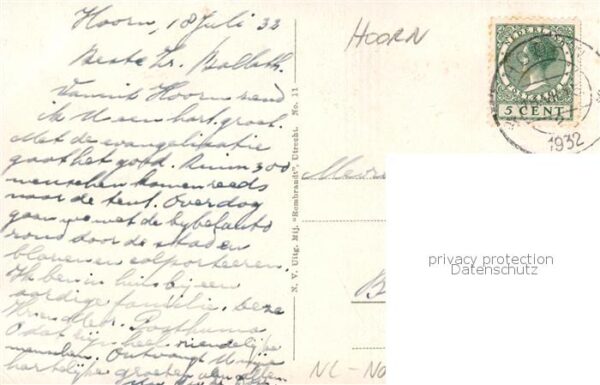 Hoorn, 18 Juli 32
Beste Zr.
Vanuit Hoorn zend
ik U een hart. groet.
Met de evangelisatie
gaat het goed. Ruim 300
menschen komen reeds
naar de tent. Overdag
gaan we met de bybelauto
rond door de stad en
colporteeren.
Ik ben in huis bij een
aardige familie. deze
Posthuma
O dat zijn heel vriendelijke
menschen. Ontvangt
hartelijke groeten van allen
N. V. Uitg. Mij. "Rembrandt", Utrecht. No. 11
HOORN
NEDERLAND
5 CENT
1932
Mevr
B
privacy protection
Datenschutz
NL-No